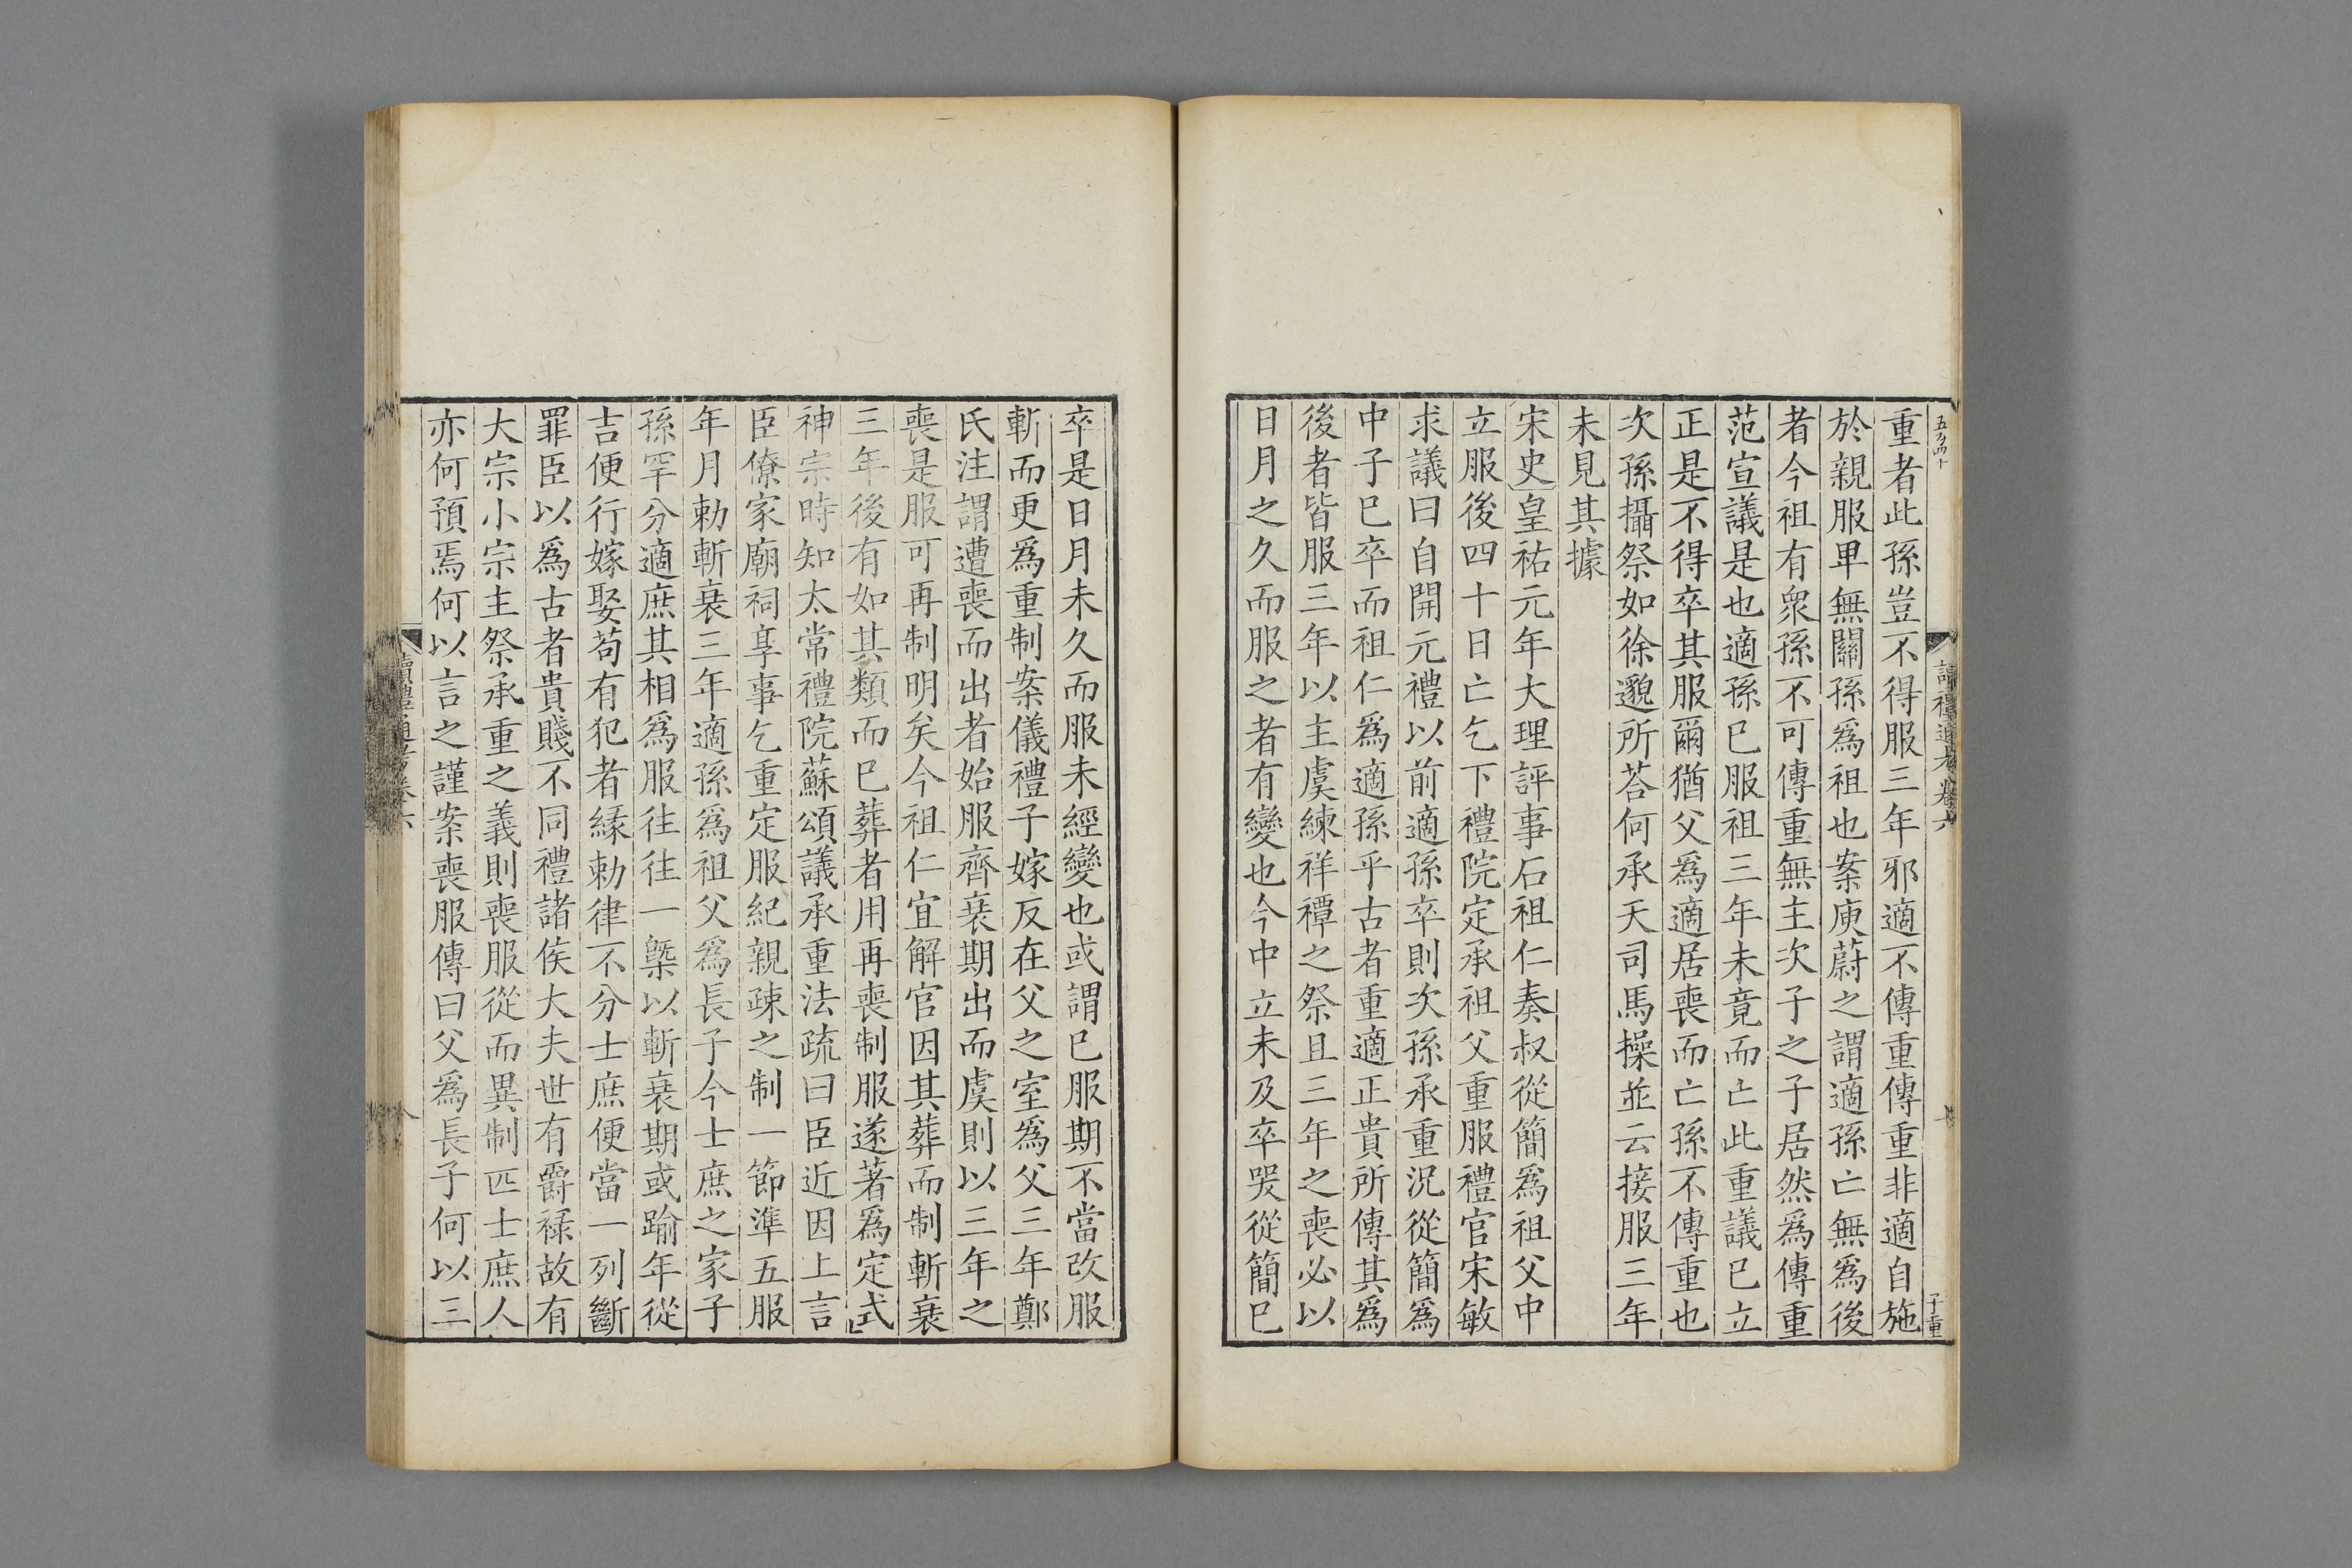 重者此孫豈不得服三年邪適不傳重傳重非適自施
於親服卑無關孫爲祖也案庾蔚之謂適孫亡無爲後
者今祖有衆孫不可傳重無主次子之子居然爲傳重
范宣議是也適孫已服祖三年未竟而亡此重議已立
正是不得卒其服爾猶父爲適居喪而亡孫不傳重也
次孫攝祭如徐邈所荅何承天司馬操並云接服三年
未見其據
宋史皇祐元年大理評事石祖仁奏叔從簡爲祖父中
立服後四十日亡乞下禮院定承祖父重服禮官宋敏
求議曰自開元禮以前適孫卒則次孫承重況從簡爲
中子已卒而祖仁爲適孫乎古者重適正貴所傳其爲
後者皆服三年以主虞練祥禫之祭且三年之喪必以
日月之久而服之者有變也今中立未及卒哭從簡已
卒是日月未久而服未經變也或謂已服期不當改服
斬而更爲重制案儀禮子嫁反在父之室爲父三年鄭
氏注謂遭喪而出者始服齊衰期出而虞則以三年之
喪是服可再制明矣今祖仁宜解官因其葬而制斬衰
三年後有如其類而已葬者用再喪制服遂著爲定式
神宗時知太常禮院蘇頌議承重法疏曰臣近因上言
臣僚家廟祠享事乞重定服紀親疎之制一節準五服
年月勅斬衰三年適孫爲祖父爲長子今士庶之家子
孫罕分適庶其相爲服往往一槩以斬衰期或踰年從
吉便行嫁娶苟有犯者緣勅律不分士庶便當一列斷
罪臣以爲古者貴賤不同禮諸侯大夫世有爵祿故有
大宗小宗主祭承重之義則喪服從而異制匹士庶人
亦何預焉何以言之謹案喪服傳曰父爲長子何以三
讀禮通考卷六
子重